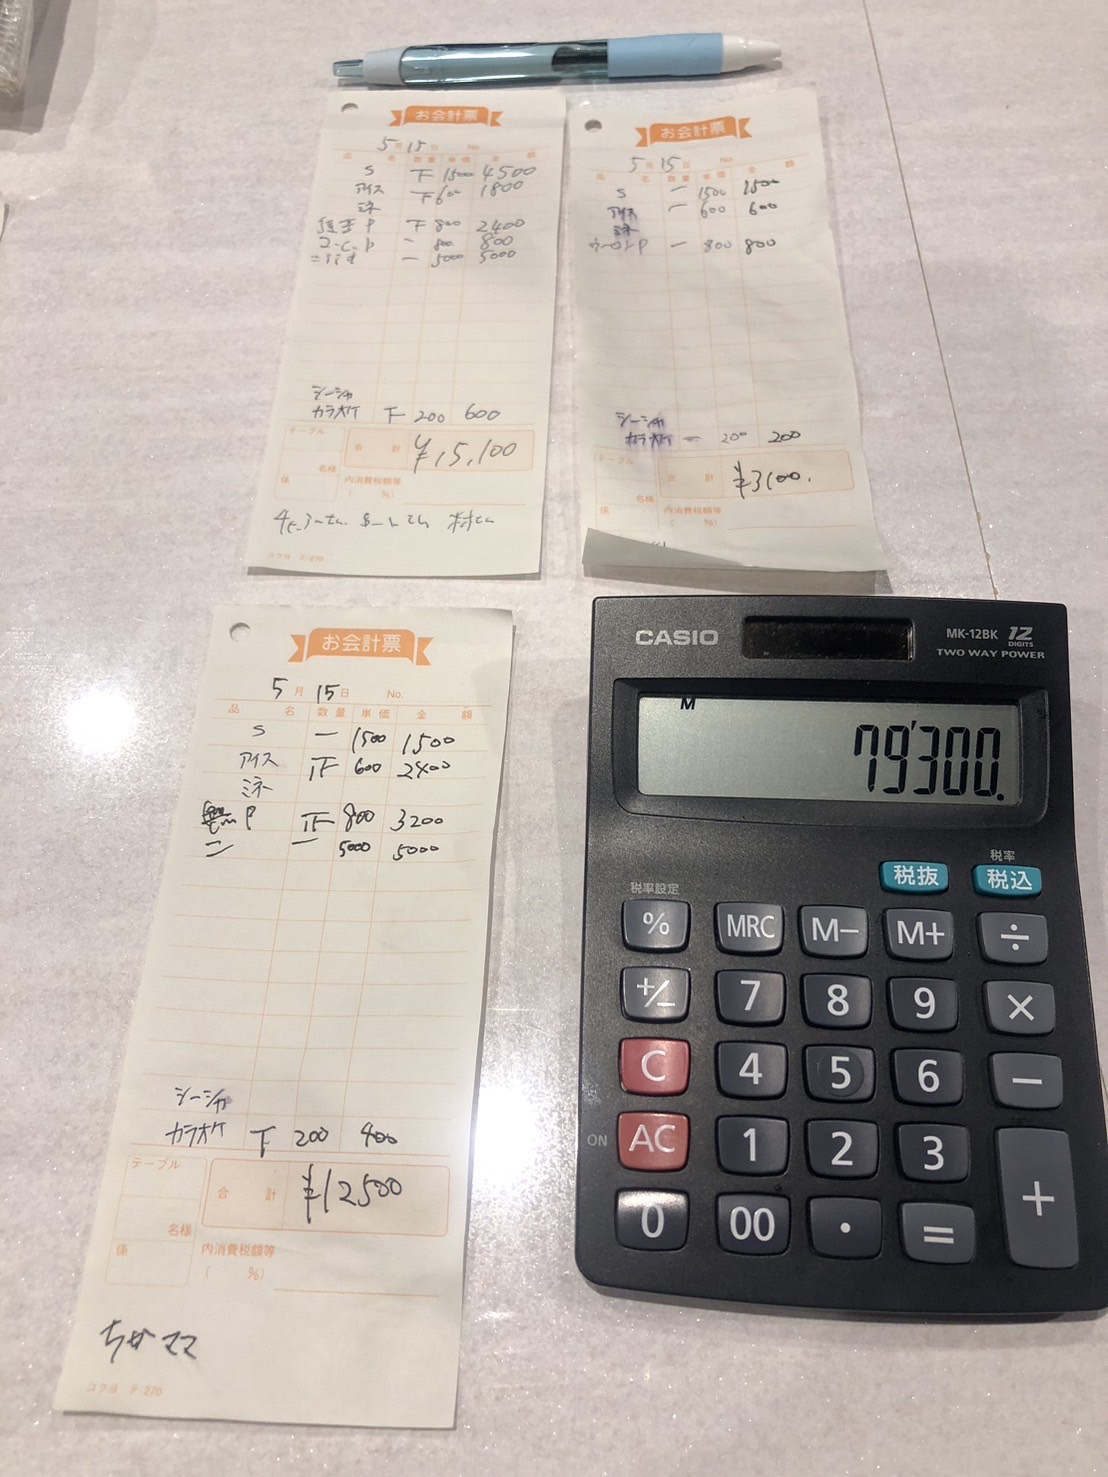 お会計票
5月15日 No.
品 名 数量 単価 金 額
S 下 1500 4500
アイス 下 600 1800
ミネ
P 下 800 2400
コーC.P 一 800 800
一 5000 5000
シーシャ
カラオケ 下 200 600
テーブル
合 計 ¥15,100
名様
係 内消費税額等
( %)
コクヨ テ-270
お会計票
5月15日 No.
品 名 数量 単価 金 額
S 一 1500 1500
アイス 一 600 600
ミネ
ウーロンP 一 800 800
シーシャ
カラオケ 一 200 200
テーブル
合 計 ¥3100.
名様
係 内消費税額等
( %)
お会計票
5月15日 No.
品 名 数量 単価 金 額
S 一 1500 1500
アイス 正 600 2400
ミネ
P 正 800 3200
ニ 一 5000 5000
シーシャ
カラオケ T 200 400
テーブル
合 計 ¥12500
名様
係 内消費税額等
( %)
ママ
コクヨ テ-270
CASIO
MK-12BK 12 DIGITS
TWO WAY POWER
M
79'300.
税率
税抜 税込
税率設定
% MRC M− M+ ÷
+/− 7 8 9 ×
C 4 5 6 −
ON AC 1 2 3 +
0 00 · =